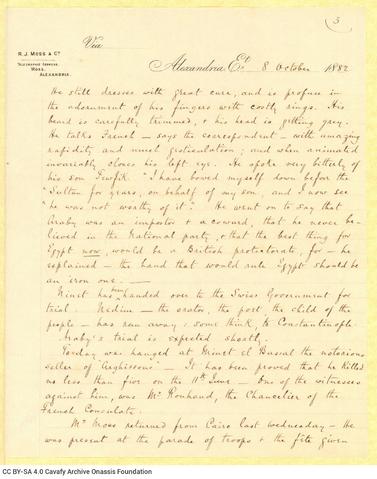 3
R. J. MOSS & Co.
TELEGRAPHIC ADDRESS,
MOSS,
ALEXANDRIA.
Via
Alexandria Et. 8 October 1882
He still dresses with great care, and is profuse in
the adornment of his fingers with costly rings. His
beard is carefully trimmed, & his head is getting grey.
He talks French – says the correspondent – with amazing
rapidity and much gesticulation; and when animated
invariably closes his left eye. He spoke very bitterly of
his son Tewfik. "I have bowed myself down before the
"Sultan for years, on behalf of my son, and I now see
"he was not worthy of it." He went on to say that
Araby was an impostor & a coward, that he never be-
lieved in the National party, & that the best thing for
Egypt now, would be a British protectorate, for – he
explained – the hand that would rule Egypt should be
an iron one. —
Ninet has been handed over to the Swiss Government for
trial. Nedim – the orator, the poet, the child of the
people – has run away; some think, to Constantinople.
Araby's trial is expected shortly.
Today was hanged at Minet el Bassal the notorious
seller of – It has been proved that he killed
no less than five on the 11th June – One of the witnesses
against him, was Mr , the Chancelier of the
French Consulate.
Mr Moss returned from Cairo last Wednesday – He
was present at the parade of troops & the fête given
CC BY-SA 4.0 Cavafy Archive Onassis Foundation